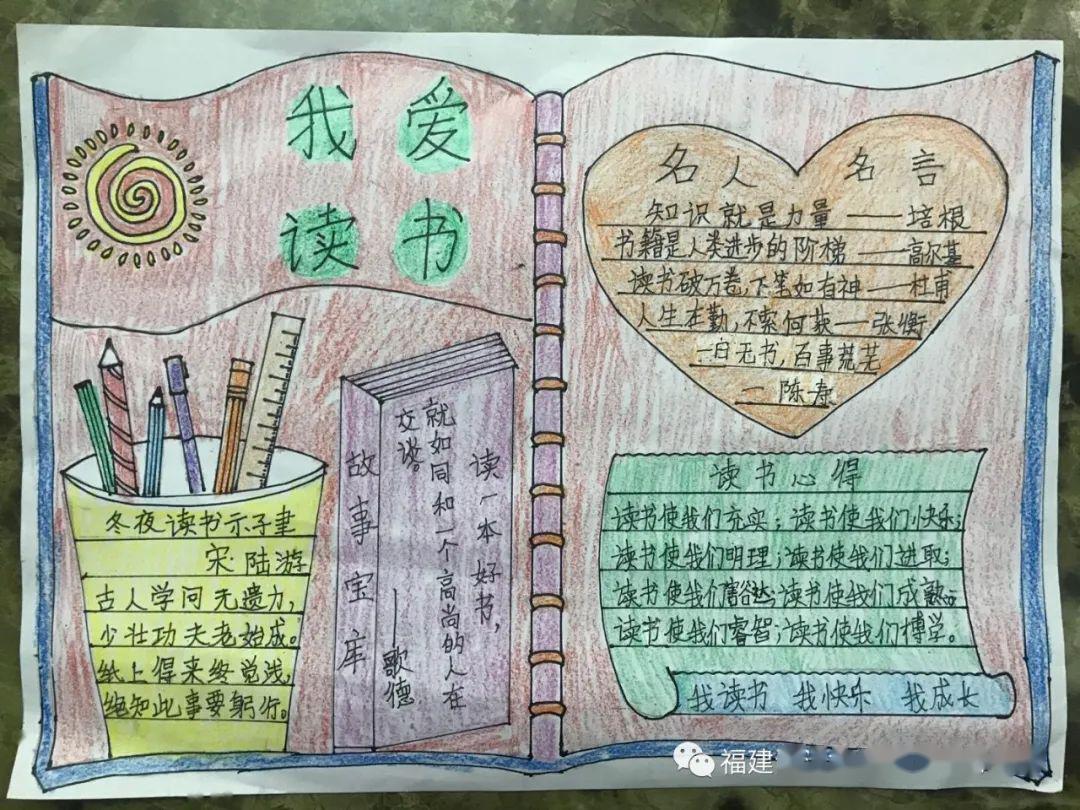 我爱
读书
冬夜读书示子聿
宋 陆游
古人学问无遗力，
少壮功夫老始成。
纸上得来终觉浅，
绝知此事要躬行。
故事宝库
读一本好书，
就如同和一个高尚的人在
交谈。
——歌德
名人 名言
知识就是力量——培根
书籍是人类进步的阶梯——高尔基
读书破万卷，下笔如有神——杜甫
人生在勤，不索何获——张衡
一日无书，百事荒芜
—陈寿
读书心得
读书使我们充实；读书使我们快乐；
读书使我们明理；读书使我们进取；
读书使我们豁达；读书使我们成熟。
读书使我们睿智；读书使我们博学。
我读书 我快乐 我成长
福建